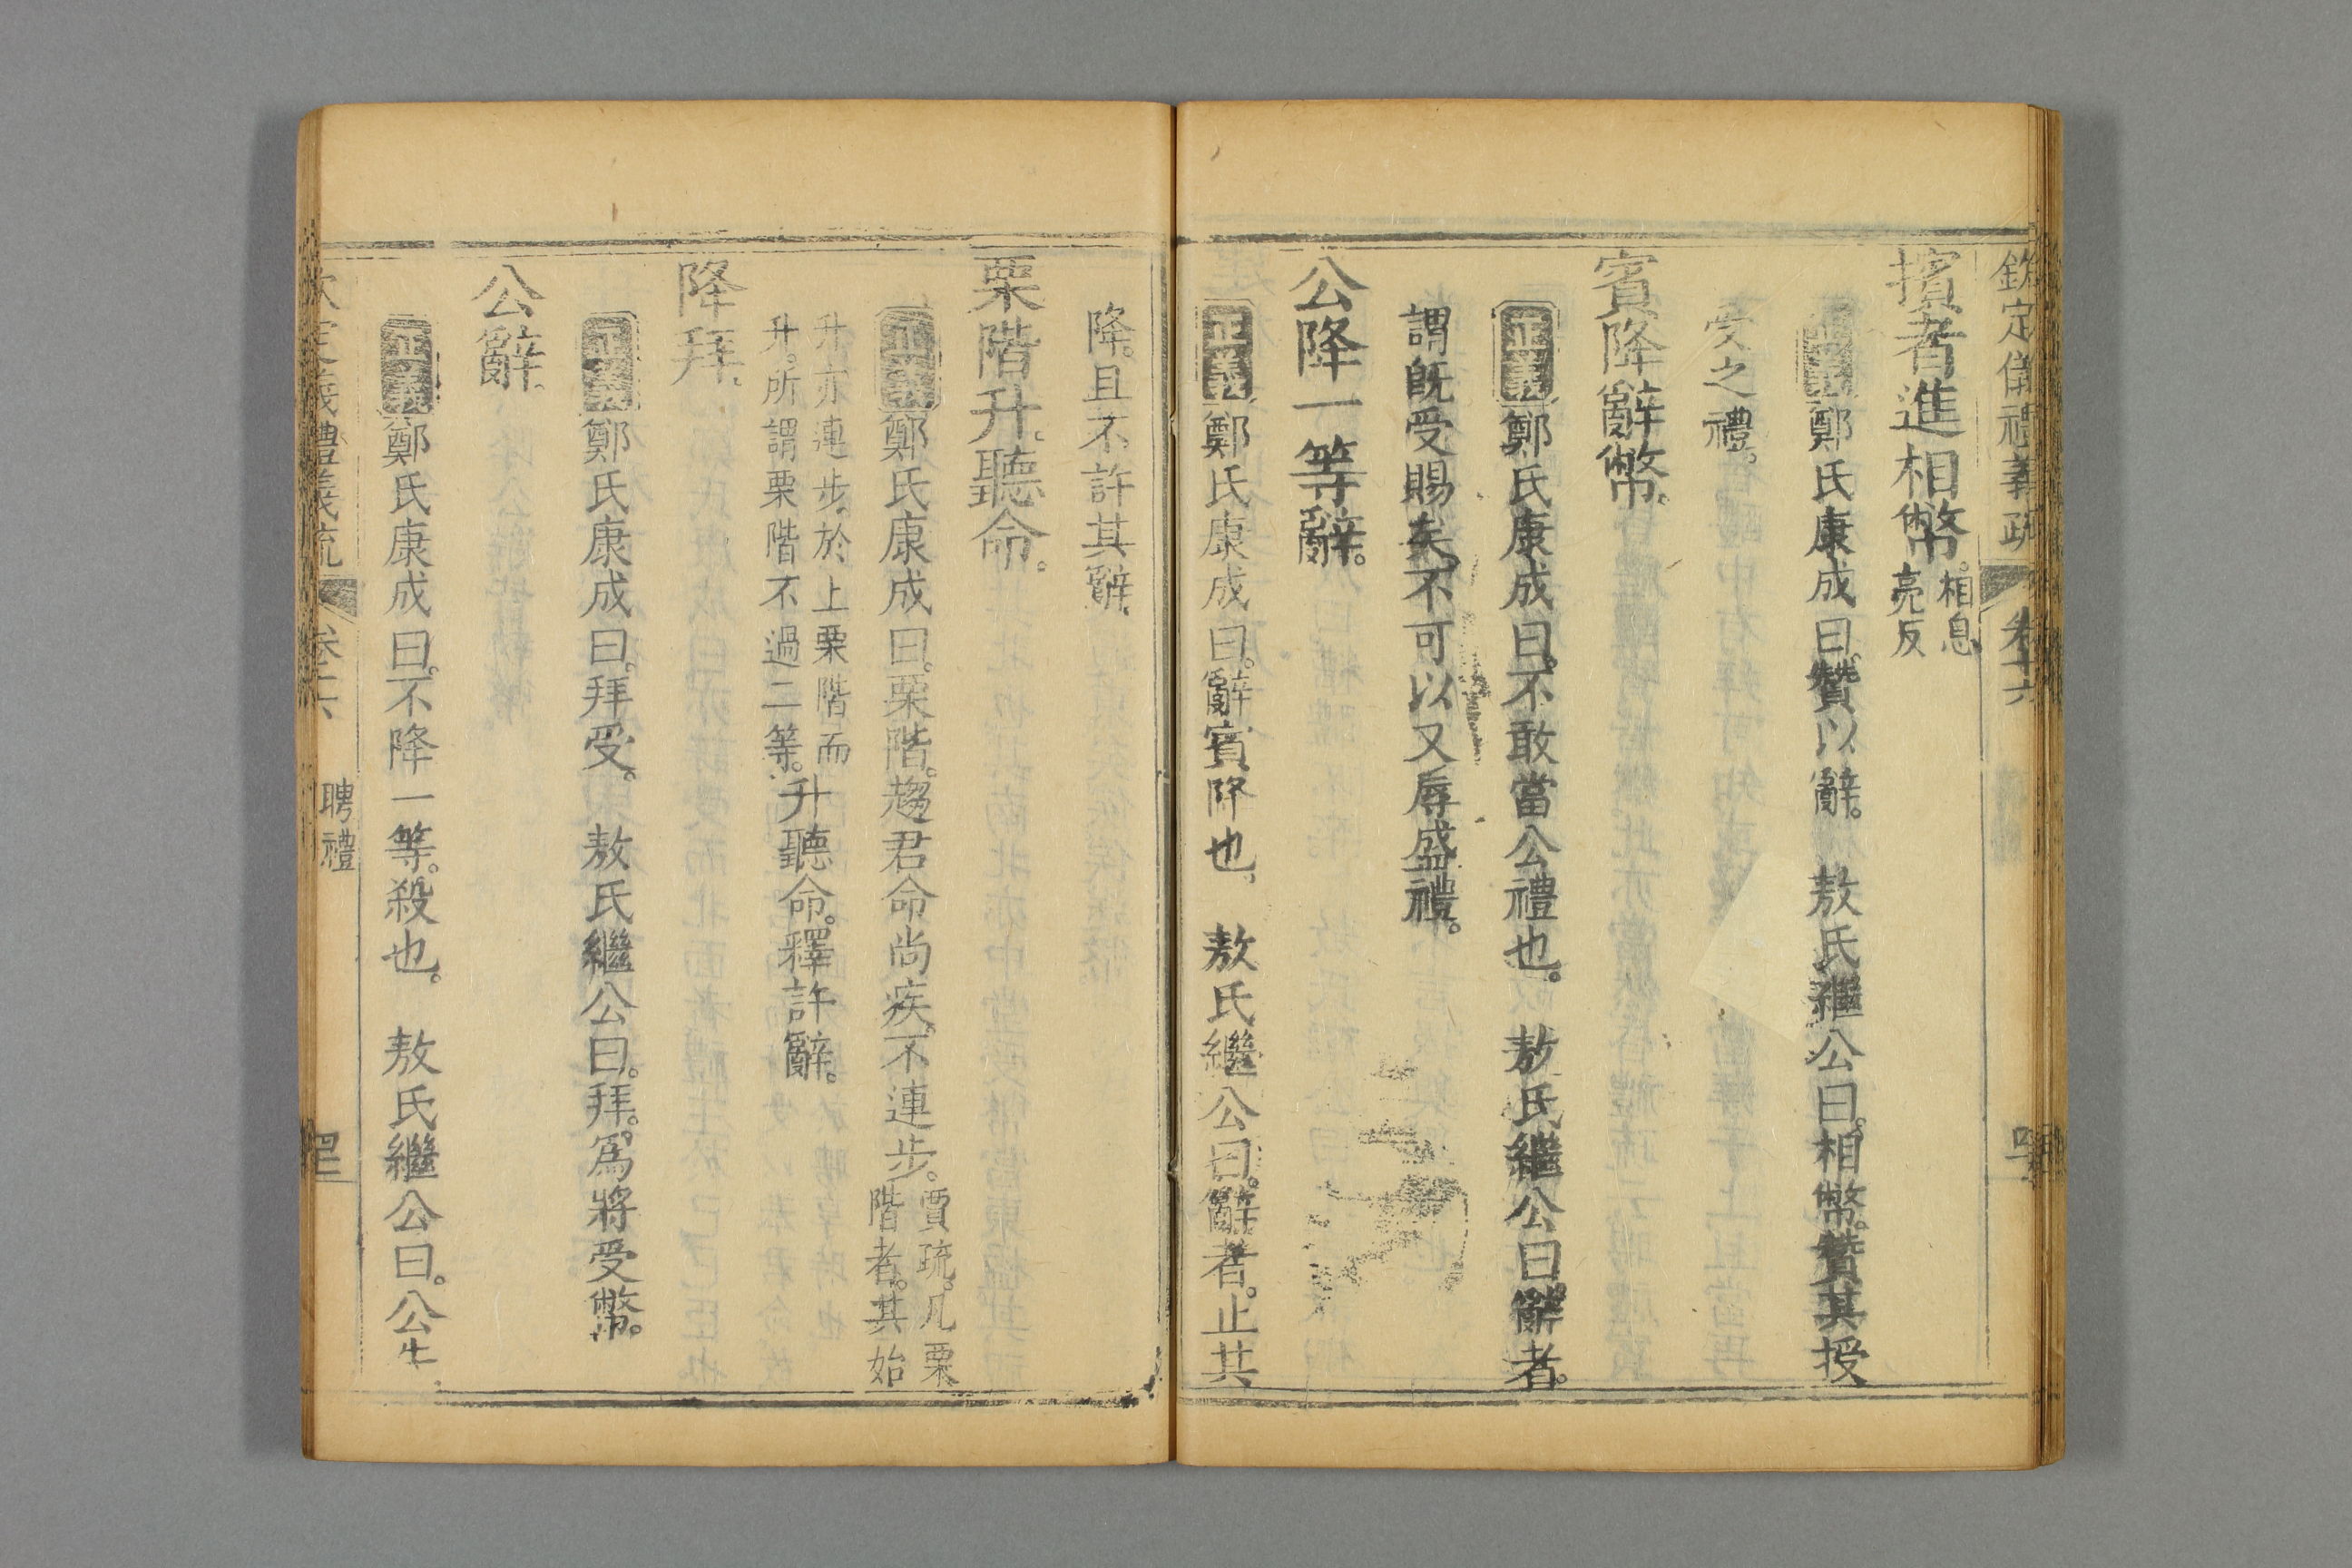 欽定儀禮義疏 卷十六
擯者進相幣。相息亮反
正義鄭氏康成曰。贊以辭。 敖氏繼公曰。相幣。贊其授
受之禮。
賓降辭幣。
正義鄭氏康成曰。不敢當公禮也。 敖氏繼公曰。辭者。
謂旣受賜矣。不可以又辱盛禮。
公降一等辭。
正義鄭氏康成曰。辭賓降也。 敖氏繼公曰。辭者。止其
降。且不許其辭。
栗階升。聽命。
正義鄭氏康成曰。栗階。趨君命尚疾。不連步。賈疏。凡栗階者。其始
升亦連步。於上栗階而升。所謂栗階不過二等。升聽命。釋許辭。
降拜。
正義鄭氏康成曰。拜受。 敖氏繼公曰。拜。爲將受幣。
公辭。
正義鄭氏康成曰。不降一等。殺也。 敖氏繼公曰。公
欽定儀禮義疏 卷十六 聘禮